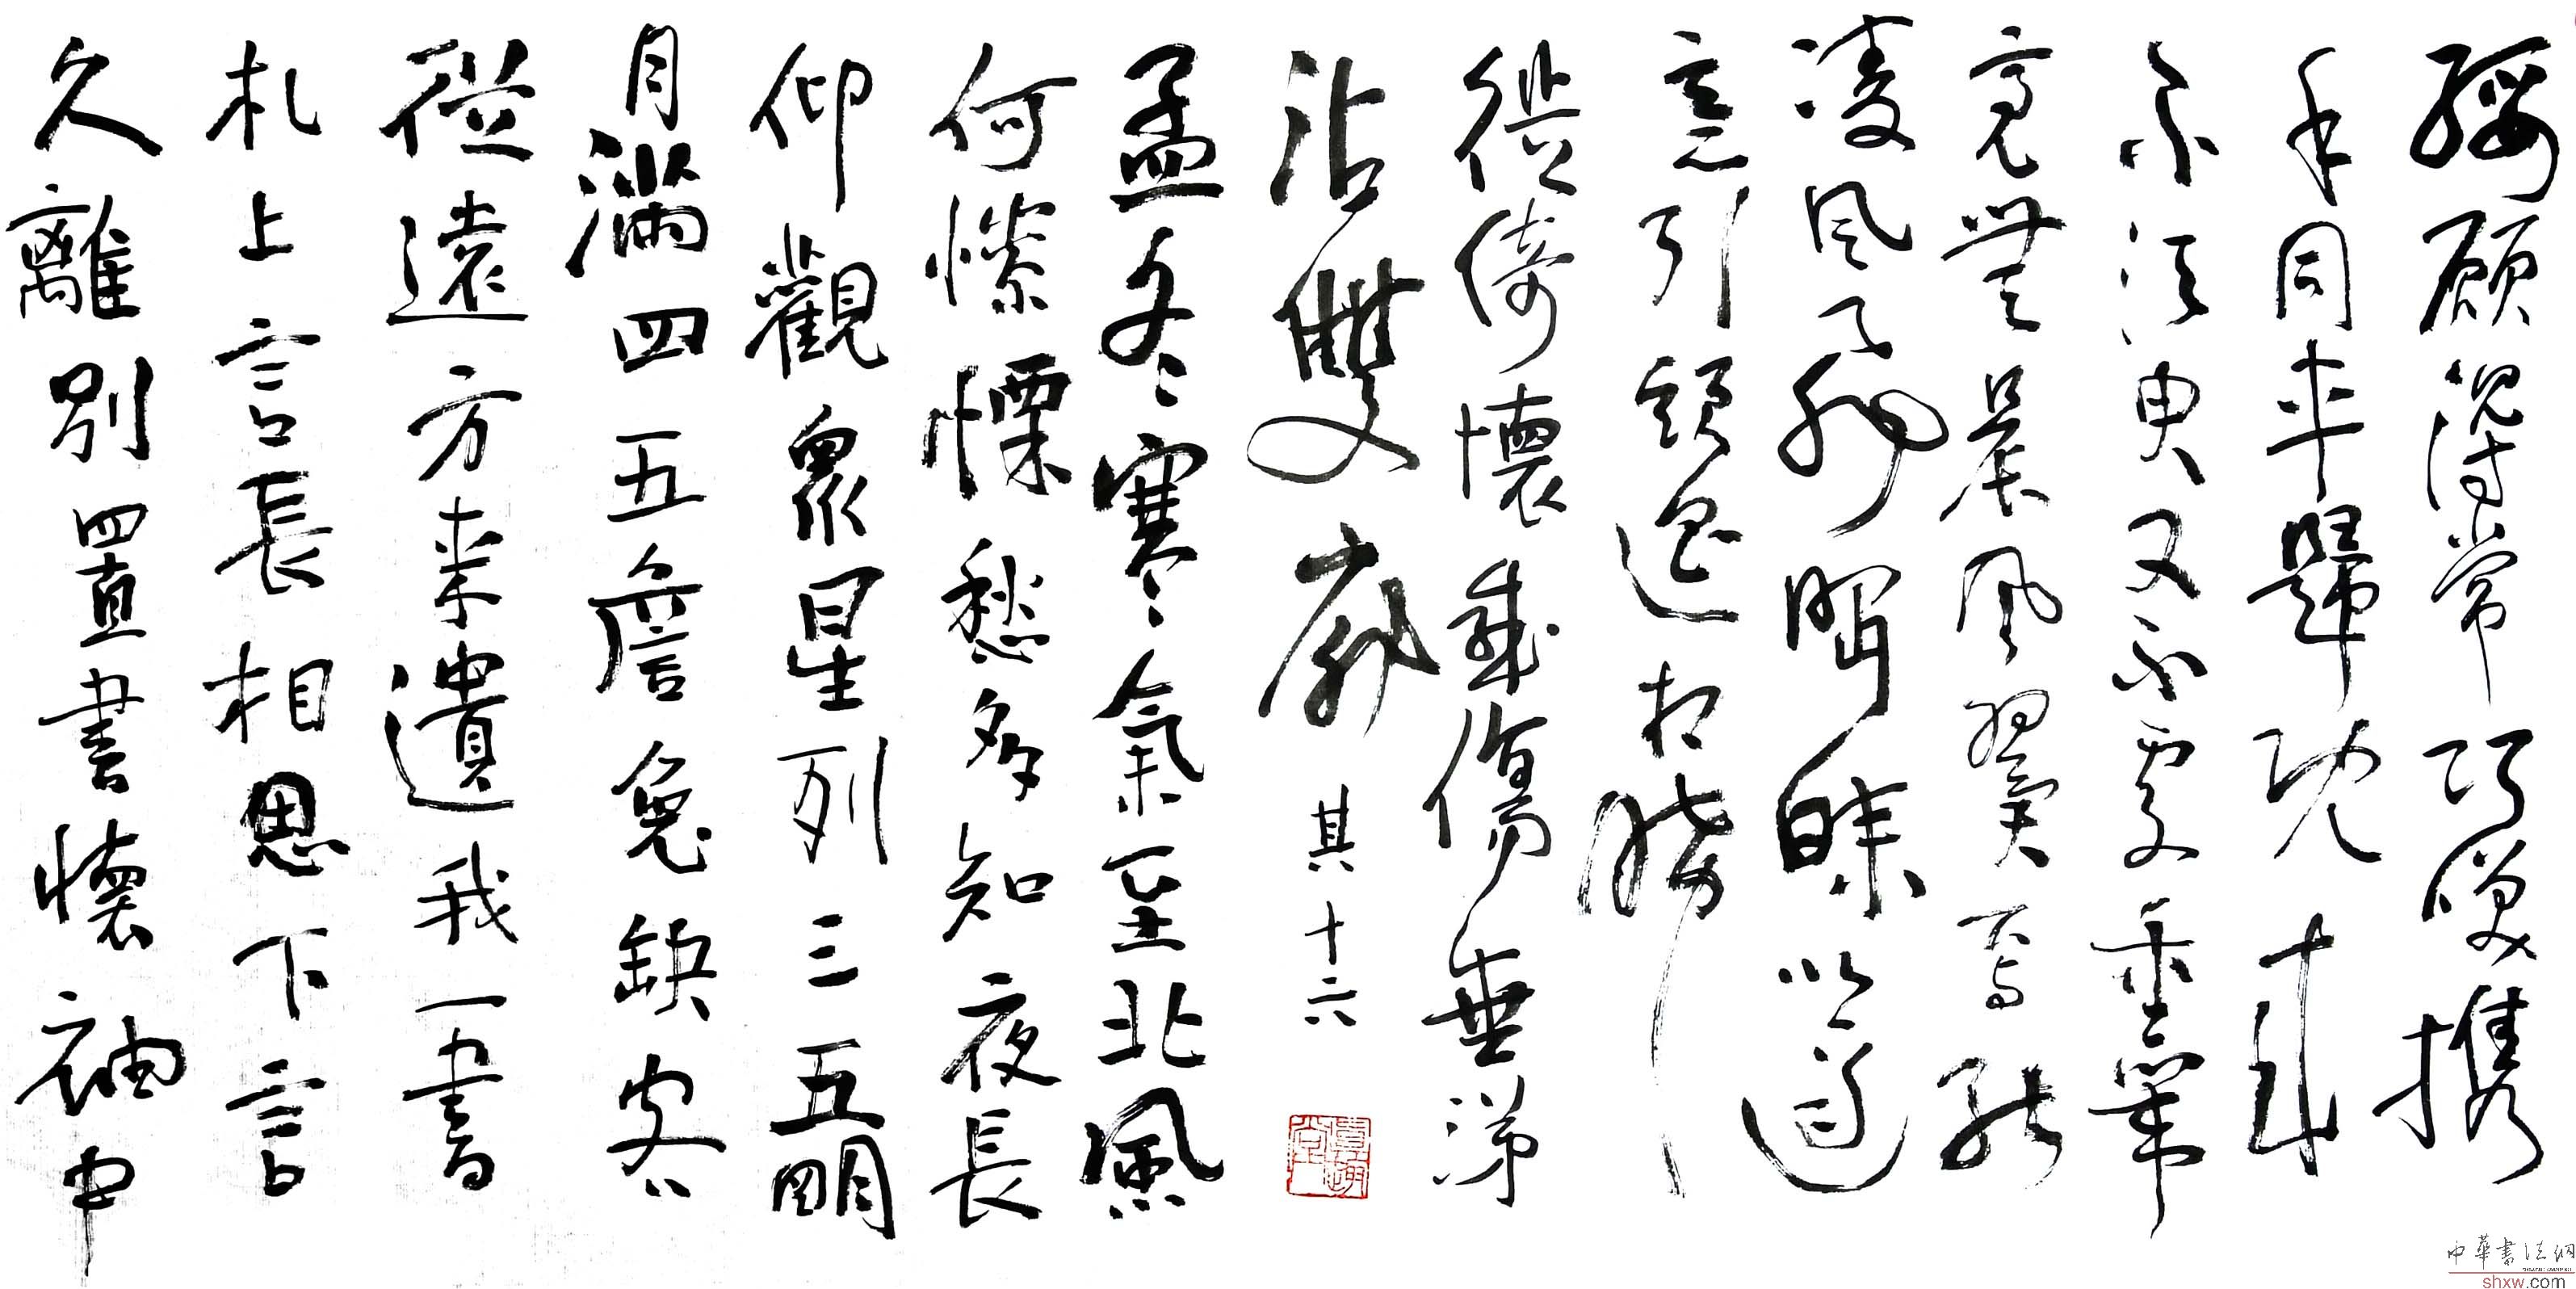 綏願得常巧笑攜
手同車歸既來
不須臾又不處重闈
亮無晨風翼焉能
凌風飛眄睞以適
意引領遙相睎
徙倚懷感傷垂涕
沾雙扉 其十六
孟冬寒氣至北風
何慘慄愁多知夜長
仰觀眾星列三五明
月滿四五詹兔缺客
從遠方來遺我一書
札上言長相思下言
久離別置書懷袖中
中華書法網
shxw.com